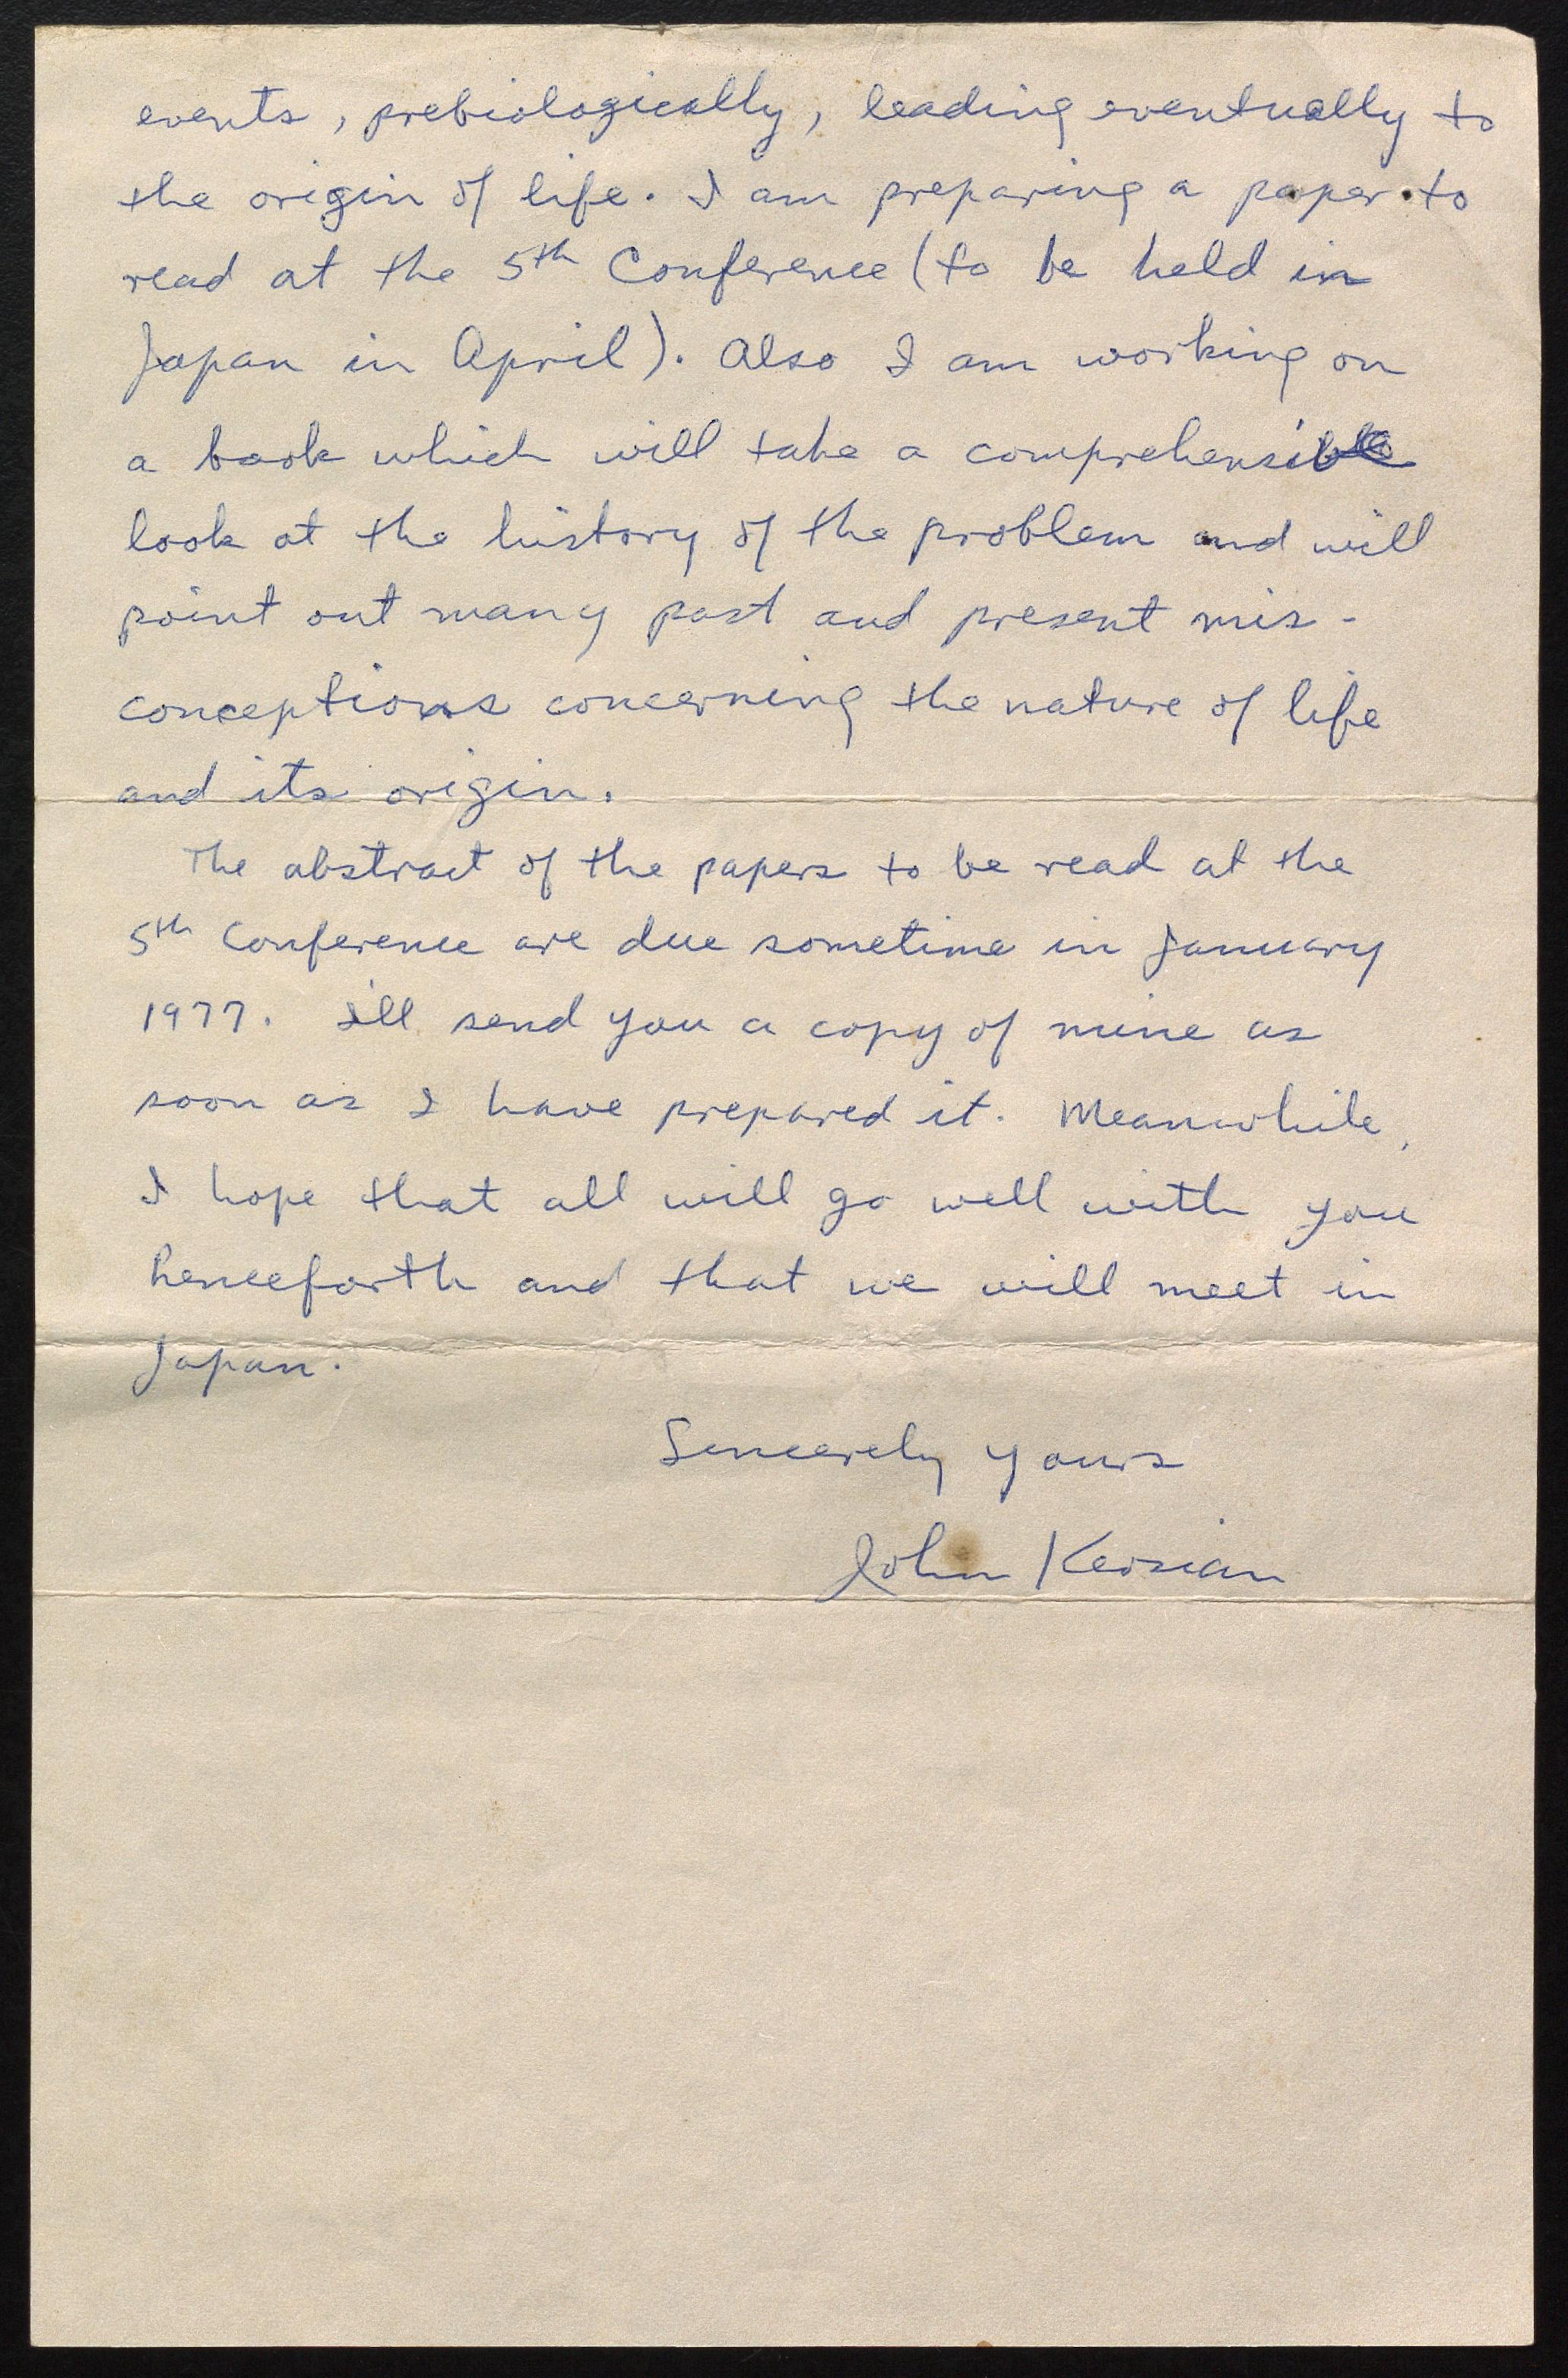 events, prebiologically, leading eventually to
the origin of life. I am preparing a paper to
read at the 5th Conference (to be held in
Japan in April). Also I am working on
a book which will take a comprehensible
look at the history of the problem and will
point out many past and present mis-
conceptions concerning the nature of life
and its origin.
The abstract of the papers to be read at the
5th Conference are due sometime in January
1977. I'll send you a copy of mine as
soon as I have prepared it. Meanwhile,
I hope that all will go well with you
henceforth and that we will meet in
Japan.
Sincerely yours
John Keosian